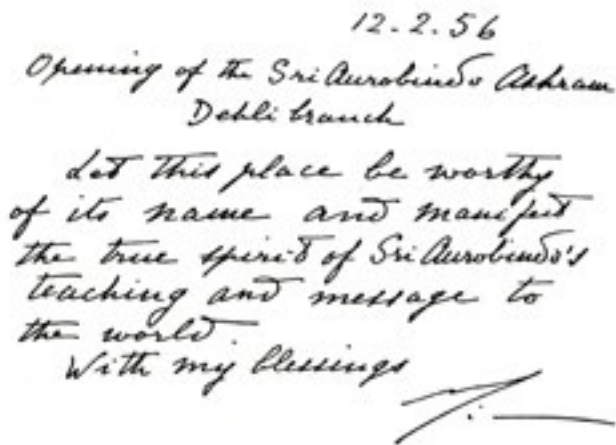 12.2.56
Opening of the Sri Aurobindo Ashram
Dehli branch
Let this place be worthy
of its name and manifest
the true spirit of Sri Aurobindo's
teaching and message to
the world.
With my blessings